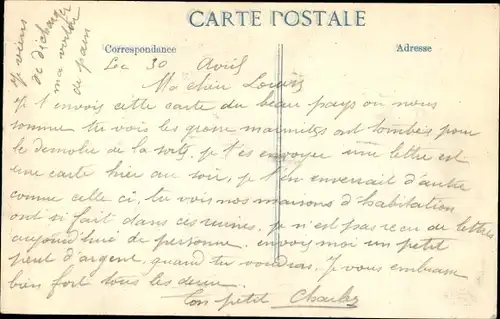 CARTE POSTALE
Correspondance
Adresse
Je viens
de
ma
de pain
Le 30 Avril
Mo chier Louis
Je t'envois cette carte du beau pays ou nous
somme tu vois les grosse marmites ont tombés pour
le demolire de la sorte, je t'es envoyer une lettre est
une carte hier au soir, je t'en enverrait d'autre
comme celle ci, tu vois nos maisons d'habitation
ont si fait dans ces ruines. je n'est pas recu de lettres
aujourd'hui de personne. envoy moi un petit
peut d'argent, quand tu voudras. Je vous embrasse
bien fort tous les deux.
Ton petit Charles